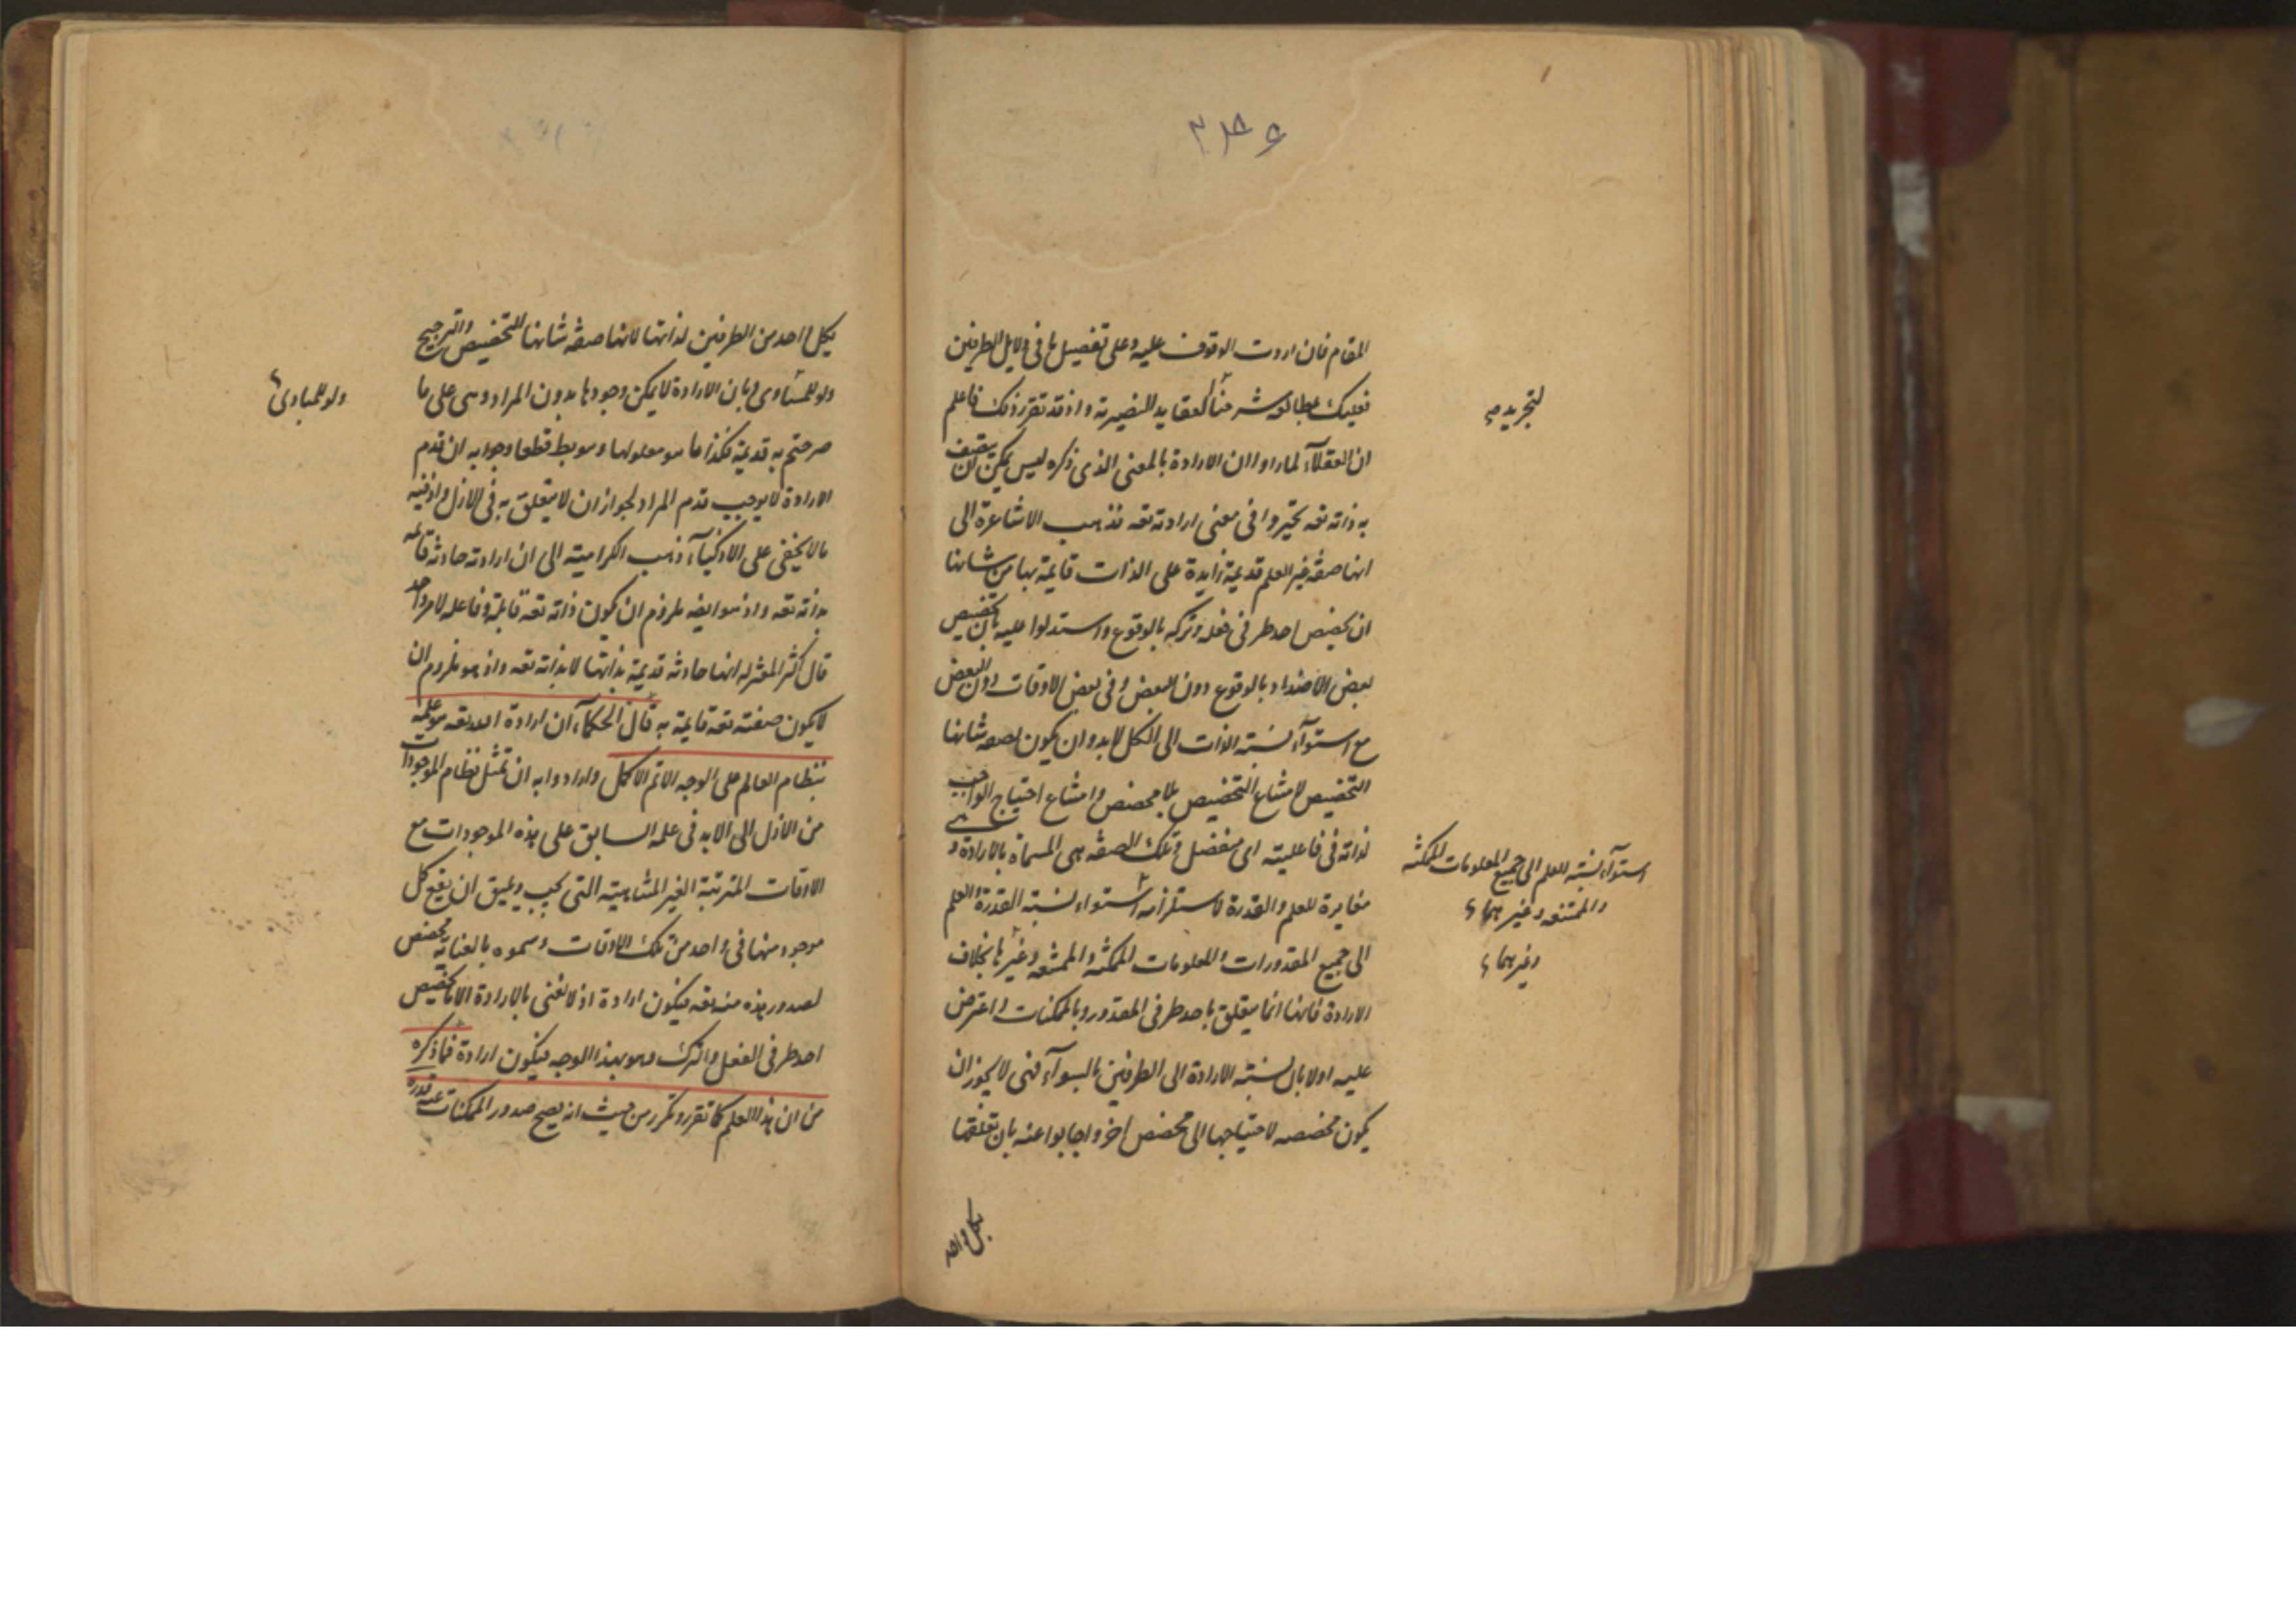 المقام فان اردت الوقوف عليه وعلى تفصيل ما فى دلايل الطرفين
فعليك بمطالعه شرحنا العقايد النصيرية واذ قد تقرر ذلك فاعلم
ان العقلآء لما راوا ان الارادة بالمعنى الذى ذكره ليس يمكن ان يتصف
به ذاته تعه تحيروا فى معنى ارادته تعه فذهب الاشاعرة الى
انها صفة غير العلم قديمة زايدة على الذات قايمة بها من شانها
ان يخصص احد طرفى فعله وتركه بالوقوع واستدلوا عليه بان تخصيص
بعض الاضداد بالوقوع دون البعض وفى بعض الاوقات دون البعض
مع استوآء نسبة الذات الى الكل لابد وان يكون لصفه شانها
التخصيص لامتناع التخصيص بلا مخصص وامتناع احتياج الواجب
لذاته فى فاعليته الى منفصل وتلك الصفه هى المسماة بالارادة و
مغايرة للعلم والقدرة لاستلزامه استواء نسبة القدرة والعلم
الى جميع المقدورات والمعلومات الممكنة والممتنعه وغيرها بخلاف
الارادة فانها انما يتعلق باحد طرفى المقدور وبالممكنات واعترض
عليه اولا بان نسبة الارادة الى الطرفين بالسوآء فنى لا يجوز ان
يكون مخصصه لاحتياجها الى مخصص اخر واجابوا عنه بان تعلقها
بكل واحد
لتجريد
استوآء نسبة العلم الى جميع المعلومات الممكنة
والممتنعه وغيرهما
وغيرهما
بكل واحد من الطرفين لذاتها لانها صفة شانها التخصيص والترجيح
ولو للمساوى وبان الارادة لا يمكن وجودها بدون المراد وهى على ما
صرحتم به قديمة فكذا ما هو معلولها وهو بط قطعا وجوابه ان قدم
الارادة لا يوجب قدم المراد لجواز ان لا يتعلق به فى الازل واذ فيه
ما لا يخفى على الاذكيآء ذهب الكرامية الى ان ارادته حادثة قائمه
بذاته تعه واذ هو ايضه ملزوم ان يكون ذاته تعه قابلة وفاعله لامر واحد
قال اكثر المعتزله انها حادثه قديمة بذاتها لا بذاته تعه واذ هو ملزوم ان
لا يكون صفته تعه قايمة به قال الحكمآء ان ارادة الله تعه هو علمه
بنظام العالم على الوجه الاتم الاكمل وارادوا به ان تمثل نظام الموجودات
من الازل الى الابد فى علمه السابق على هذه الموجودات مع
الاوقات المترتبة الغير المتناهية التى يجب ويليق ان يقع كل
موجود منها فى واحد من تلك الاوقات وسموه بالعناية مخصص
لصدور هذه منه تعه فيكون ارادة اذ لا نعنى بالارادة الا ما تخصيص
احد طرفى الفعل والترك وهو بهذا الوجه فيكون ارادة فما ذكره
من ان هذا العلم كما تقرر وتكرر من حيث انه يصح صدور الممكنات عنه قدرة
ولو للمبادى